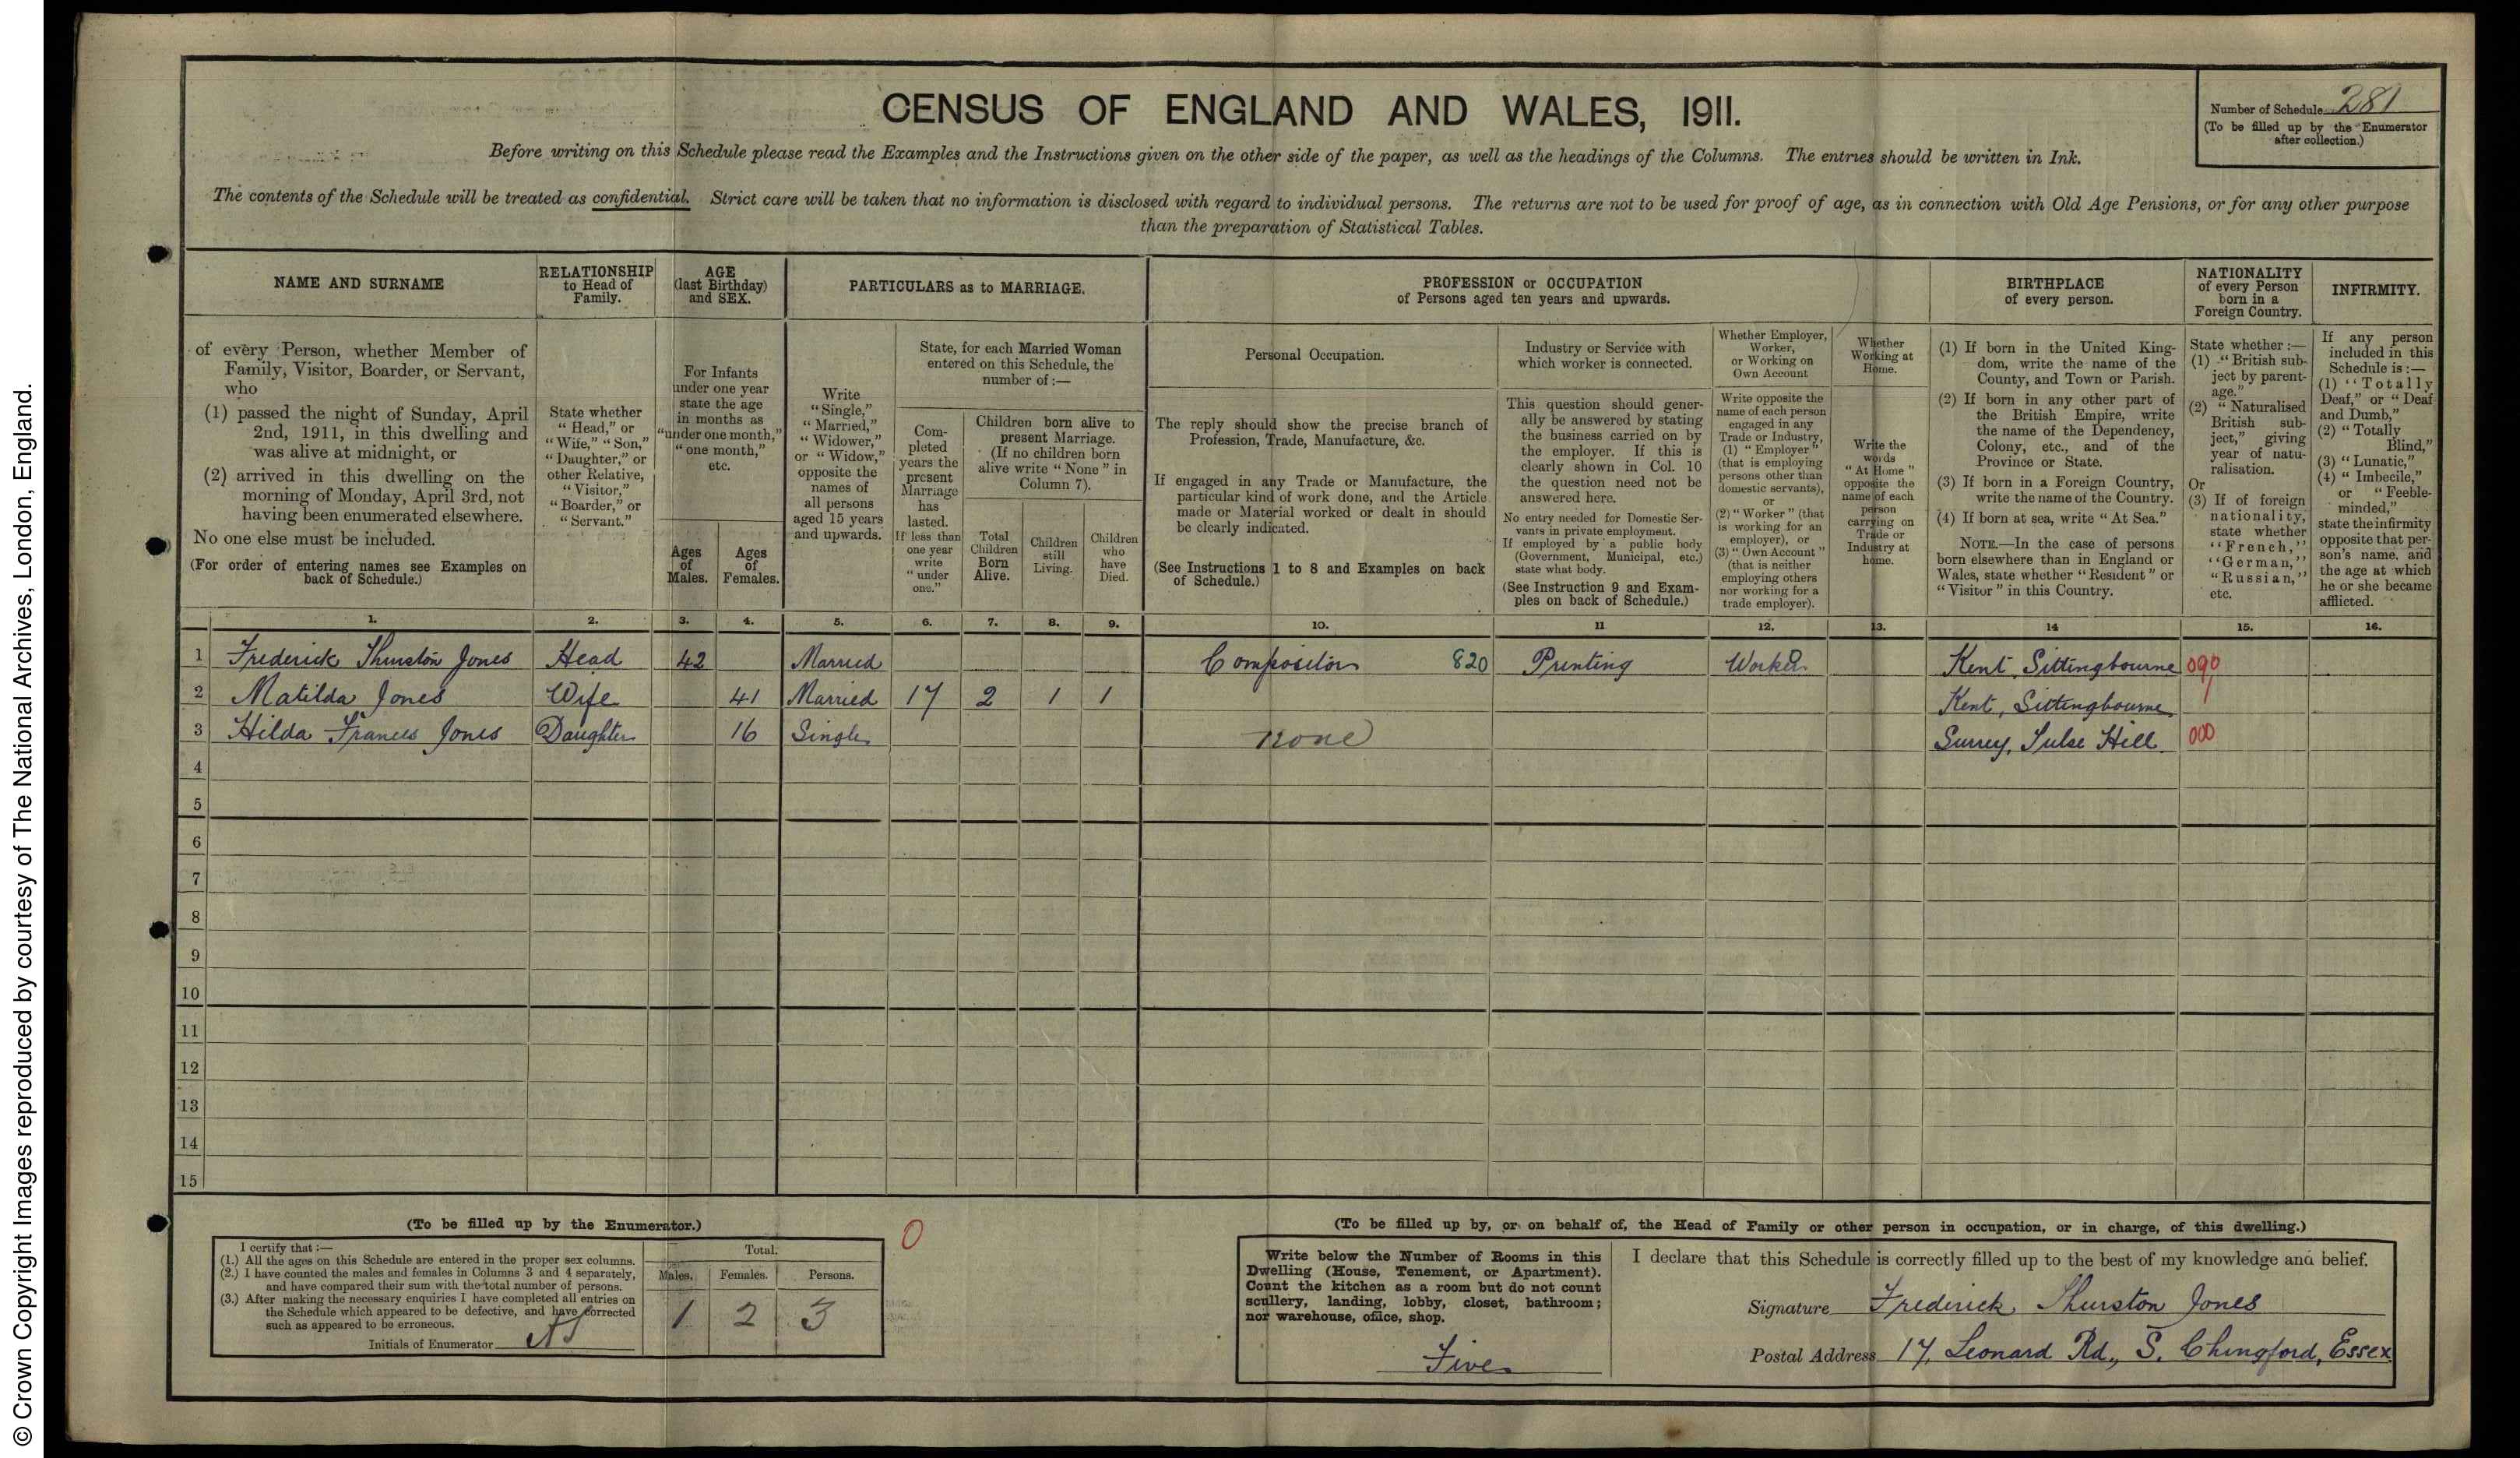 CENSUS OF ENGLAND AND WALES, 1911.
Number of Schedule 281
(To be filled up by the Enumerator
after collection.)
Before writing on this Schedule please read the Examples and the Instructions given on the other side of the paper, as well as the headings of the Columns. The entries should be written in Ink.
The contents of the Schedule will be treated as confidential. Strict care will be taken that no information is disclosed with regard to individual persons. The returns are not to be used for proof of age, as in connection with Old Age Pensions, or for any other purpose
than the preparation of Statistical Tables.
NAME AND SURNAME
of every Person, whether Member of
Family, Visitor, Boarder, or Servant,
who
(1) passed the night of Sunday, April
2nd, 1911, in this dwelling and
was alive at midnight, or
(2) arrived in this dwelling on the
morning of Monday, April 3rd, not
having been enumerated elsewhere.
No one else must be included.
(For order of entering names see Examples on
back of Schedule.)
RELATIONSHIP
to Head of
Family.
State whether
"Head," or
"Wife," "Son,"
"Daughter," or
other Relative,
"Visitor,"
"Boarder," or
"Servant."
AGE
(last Birthday)
and SEX.
For Infants
under one year
state the age
in months as
"under one month,"
"one month,"
etc.
Ages
of
Males.
Ages
of
Females.
PARTICULARS as to MARRIAGE.
Write
"Single,"
"Married,"
"Widower,"
or "Widow,"
opposite the
names of
all persons
aged 15 years
and upwards.
State, for each Married Woman
entered on this Schedule, the
number of :—
Com-
pleted
years the
present
Marriage
has
lasted.
If less than
one year
write
"under
one."
Children born alive to
present Marriage.
(If no children born
alive write "None" in
Column 7).
Total
Children
Born
Alive.
Children
still
Living.
Children
who
have
Died.
PROFESSION or OCCUPATION
of Persons aged ten years and upwards.
Personal Occupation.
The reply should show the precise branch of
Profession, Trade, Manufacture, &c.
If engaged in any Trade or Manufacture, the
particular kind of work done, and the Article
made or Material worked or dealt in should
be clearly indicated.
(See Instructions 1 to 8 and Examples on back
of Schedule.)
Industry or Service with
which worker is connected.
This question should gener-
ally be answered by stating
the business carried on by
the employer. If this is
clearly shown in Col. 10
the question need not be
answered here.
No entry needed for Domestic Ser-
vants in private employment.
If employed by a public body
(Government, Municipal, etc.)
state what body.
(See Instruction 9 and Exam-
ples on back of Schedule.)
Whether Employer,
Worker,
or Working on
Own Account
Write opposite the
name of each person
engaged in any
Trade or Industry,
(1) "Employer"
(that is employing
persons other than
domestic servants),
or
(2) "Worker" (that
is working for an
employer), or
(3) "Own Account"
(that is neither
employing others
nor working for a
trade employer).
Whether
Working at
Home.
Write the
words
"At Home"
opposite the
name of each
person
carrying on
Trade or
Industry at
home.
BIRTHPLACE
of every person.
(1) If born in the United King-
dom, write the name of the
County, and Town or Parish.
(2) If born in any other part of
the British Empire, write
the name of the Dependency,
Colony, etc., and of the
Province or State.
(3) If born in a Foreign Country,
write the name of the Country.
(4) If born at sea, write "At Sea."
NOTE.—In the case of persons
born elsewhere than in England or
Wales, state whether "Resident" or
"Visitor" in this Country.
NATIONALITY
of every Person
born in a
Foreign Country.
State whether :—
(1) "British sub-
ject by parent-
age."
(2) "Naturalised
British sub-
ject," giving
year of natu-
ralisation.
Or
(3) If of foreign
nationality,
state whether
"French,"
"German,"
"Russian,"
etc.
INFIRMITY.
If any person
included in this
Schedule is :—
(1) "Totally
Deaf," or "Deaf
and Dumb,"
(2) "Totally
Blind,"
(3) "Lunatic,"
(4) "Imbecile,"
or "Feeble-
minded,"
state the infirmity
opposite that per-
son's name, and
the age at which
he or she became
afflicted.
1. 2. 3. 4. 5. 6. 7. 8. 9. 10. 11 12. 13. 14 15. 16.
1 Frederick Thurston Jones Head 42 Married Compositor 820 Printing Worker Kent, Sittingbourne 090
2 Matilda Jones Wife 41 Married 17 2 1 1 Kent, Sittingbourne
3 Hilda Frances Jones Daughter 16 Single None Surrey, Tulse Hill 000
4
5
6
7
8
9
10
11
12
13
14
15
(To be filled up by the Enumerator.)
I certify that :—
(1.) All the ages on this Schedule are entered in the proper sex columns.
(2.) I have counted the males and females in Columns 3 and 4 separately,
and have compared their sum with the total number of persons.
(3.) After making the necessary enquiries I have completed all entries on
the Schedule which appeared to be defective, and have corrected
such as appeared to be erroneous.
Initials of Enumerator
Total.
Males. Females. Persons.
1 2 3
0
(To be filled up by, or on behalf of, the Head of Family or other person in occupation, or in charge, of this dwelling.)
Write below the Number of Rooms in this
Dwelling (House, Tenement, or Apartment).
Count the kitchen as a room but do not count
scullery, landing, lobby, closet, bathroom;
nor warehouse, office, shop.
Five
I declare that this Schedule is correctly filled up to the best of my knowledge and belief.
Signature Frederick Thurston Jones
Postal Address 17, Leonard Rd., S. Chingford, Essex
© Crown Copyright Images reproduced by courtesy of The National Archives, London, England.